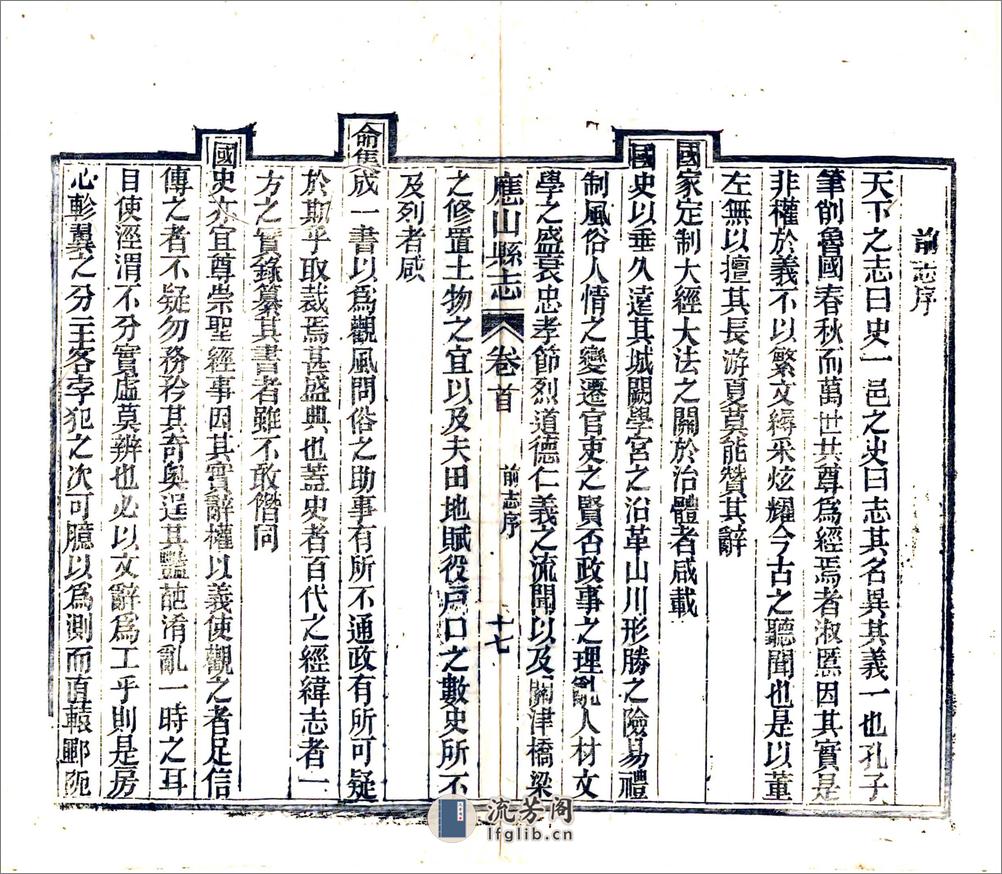 前志序
天下之志曰史一邑之史曰志其名異其義一也孔子
筆削魯國春秋而萬世共尊為經焉者淑慝因其實是
非權於義不以繁文縟采炫耀今古之聽聞也是以董
左無以擅其長游夏莫能贊其辭
國家定制大經大法之關於治體者咸載
國史以垂久遠其城闕學宮之沿革山川形勝之險易禮
制風俗人情之變遷官吏之賢否政事之理亂人材文
學之盛衰忠孝節烈道德仁義之流聞以及關津橋梁
應山縣志 卷首 前志序 十七
之修置土物之宜以及夫田地賦役戸口之數史所不
及列者咸
命集成一書以爲觀風問俗之助事有所不通政有所可疑
於斯乎取裁焉甚盛典也蓋史者百代之經緯志者一
方之實錄纂其書者雖不敢僭同
國史亦宜尊崇聖經事因其實辭權以義使觀之者足信
傳之者不疑勿務矜其奇奥逞其豔葩淆亂一時之耳
目使涇渭不分實虛莫辨也必以文辭爲工乎則是房
心軫翼之分主客孛犯之次可臆以爲測而直轅郾阨
流芳阁
lfglib.cn